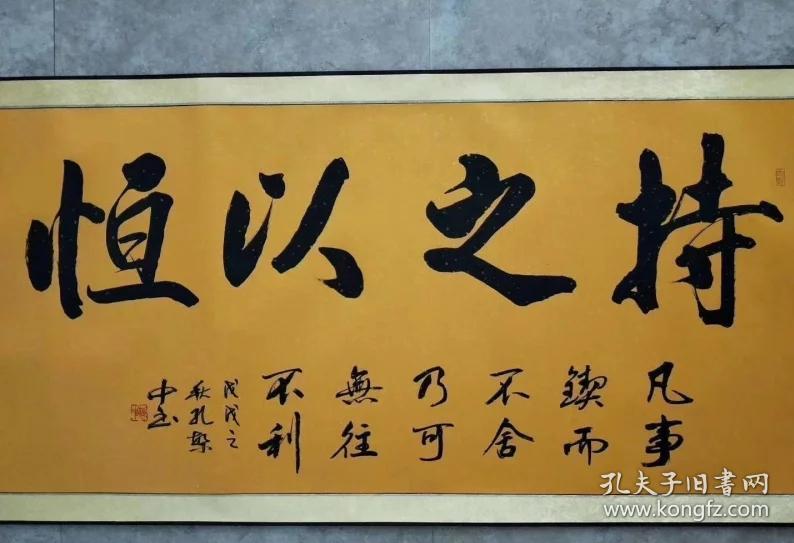 持之以恒
凡事
鍥而
不舍
乃可
無往
不利
戊戌之
秋孔繁
中書
孔夫子旧书网
www.kongfz.com